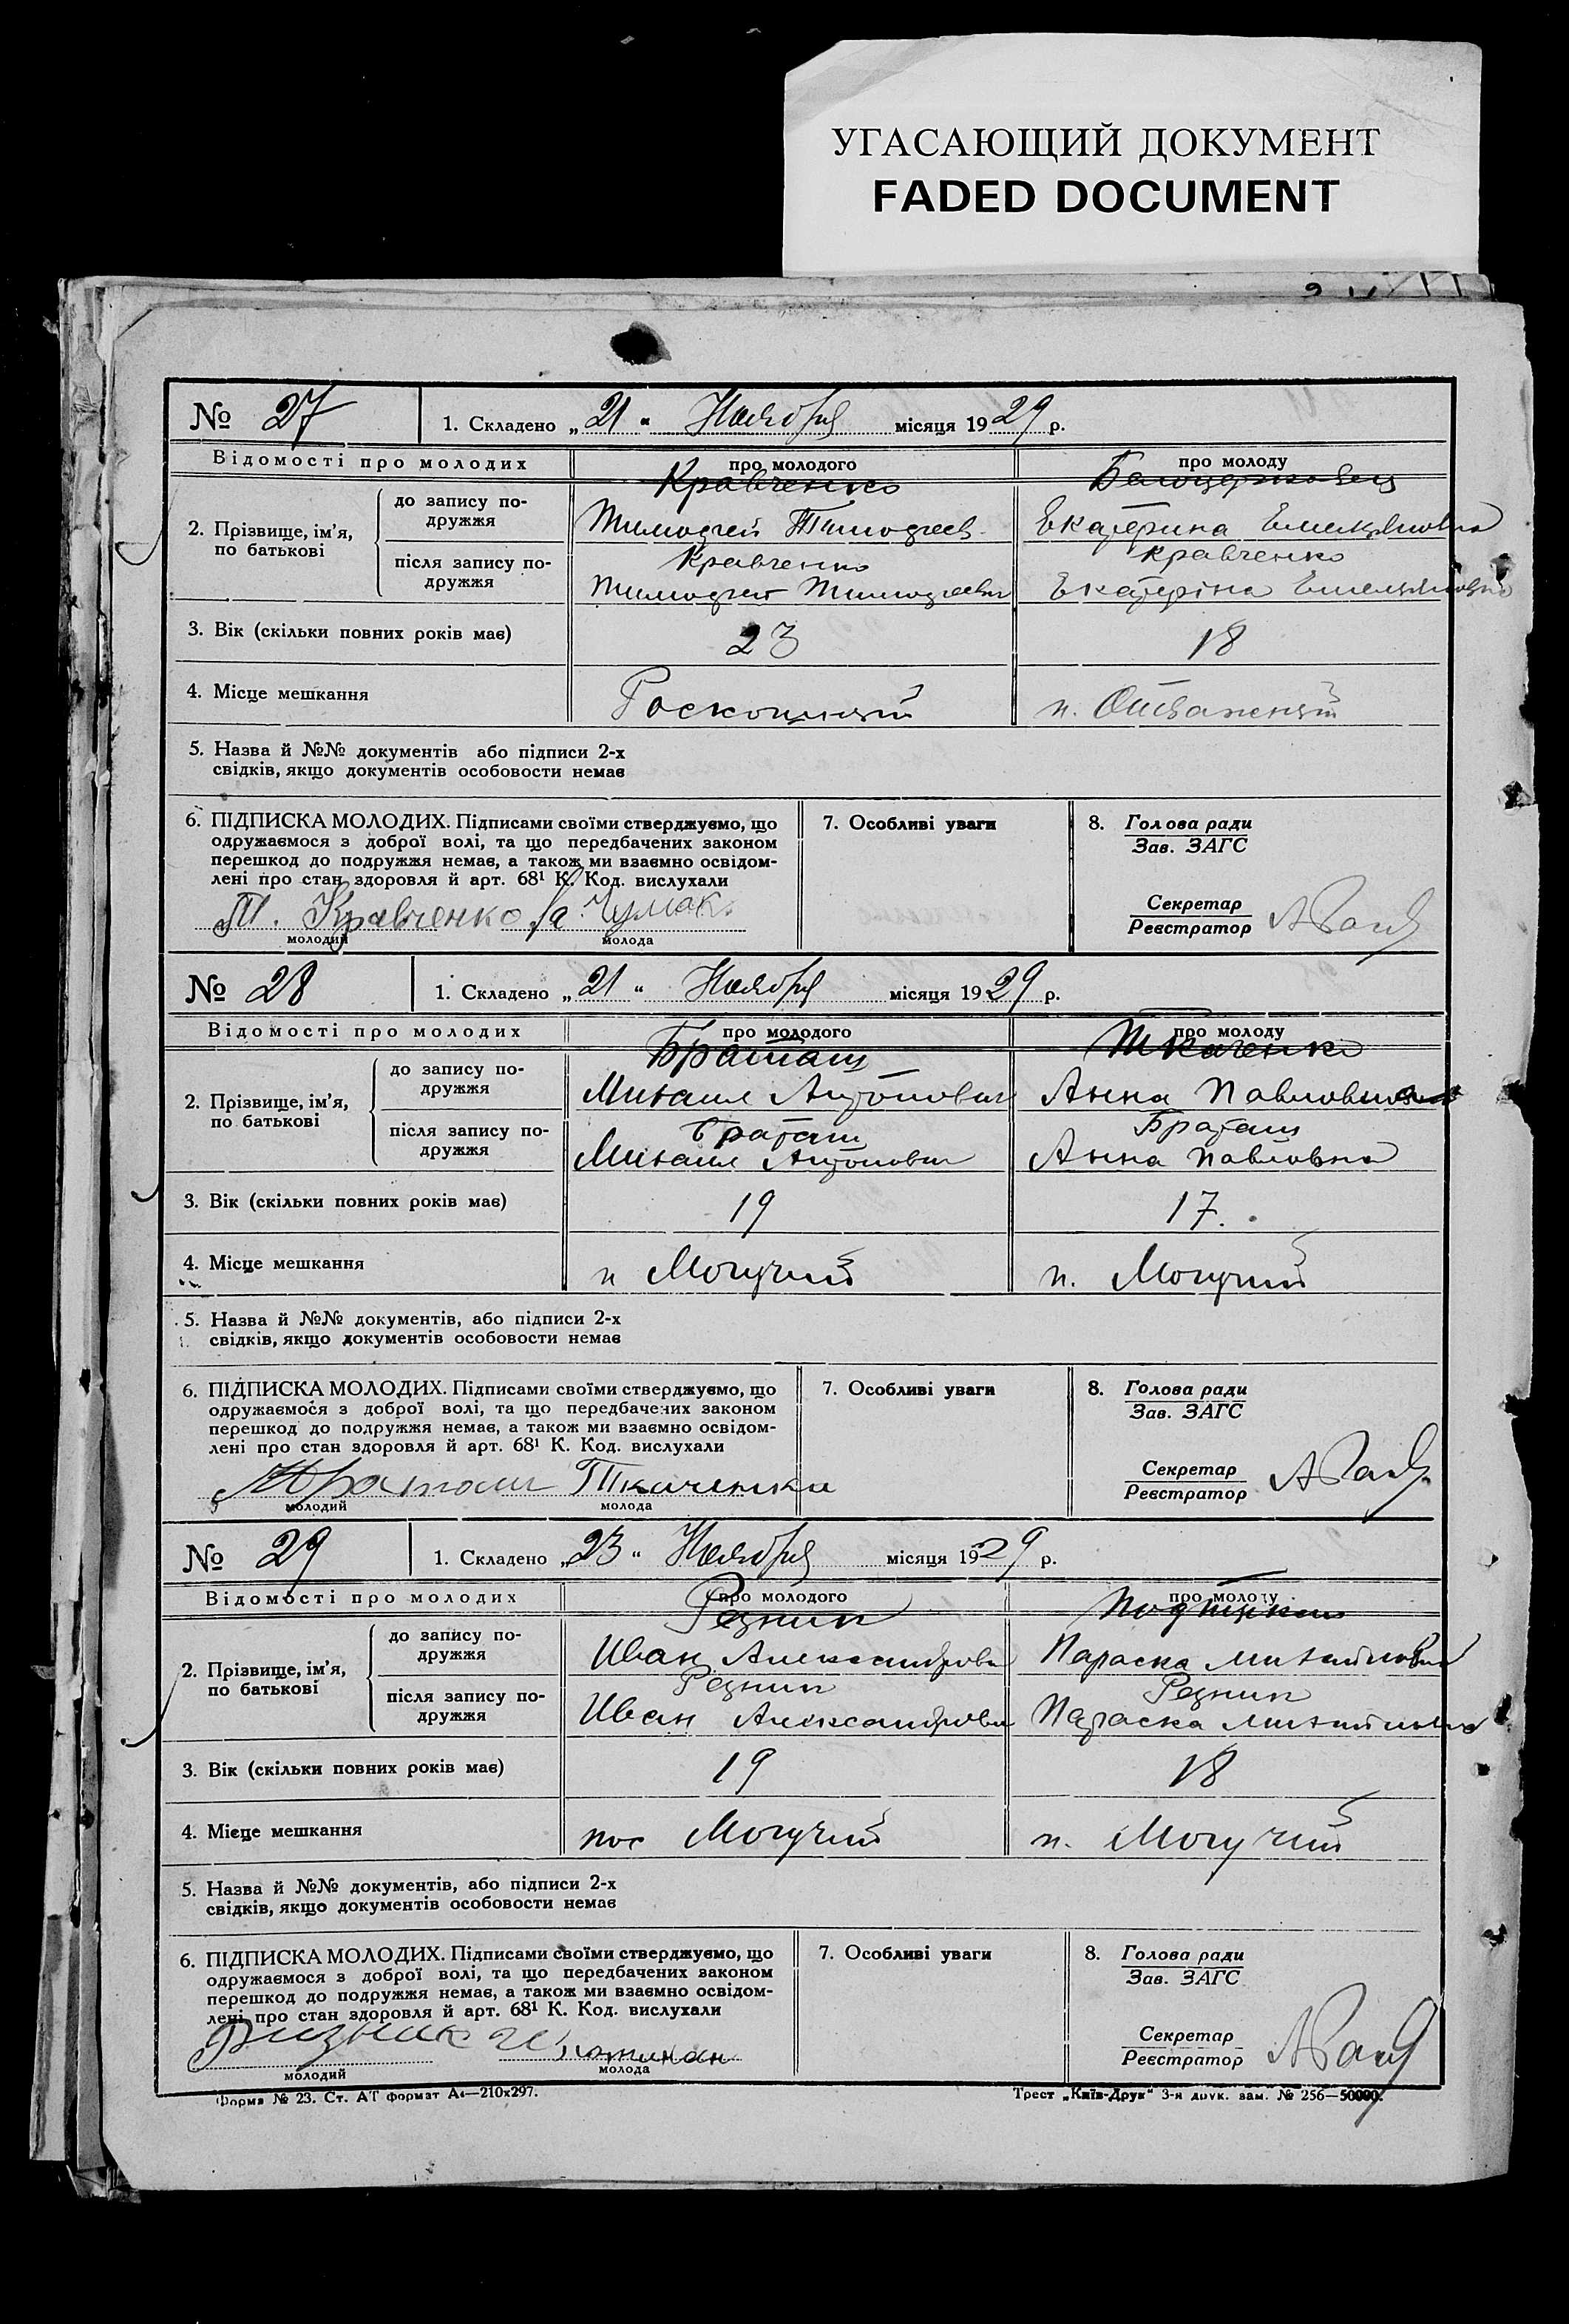 УГАСАЮЩИЙ ДОКУМЕНТ
FADED DOCUMENT
№ 27 1. Складено „21“ Ноября місяця 1929 р.
Відомості про молодих про молодого про молоду
Кравченко
2. Прізвище, ім'я, по батькові
до запису подружжя Тимофей Тимофеев. Екатерина Емельяновна
Кравченко Кравченко
після запису подружжя Тимофей Тимофеевич Екатеріна Емельяновна
3. Вік (скільки повних років має) 23 18
4. Місце мешкання Роскошный п.
5. Назва й №№ документів або підписи 2-х
свідків, якщо документів особовости немає
6. ПІДПИСКА МОЛОДИХ. Підписами своїми стверджуємо, що
одружаємося з доброї волі, та що передбачених законом
перешкод до подружжя немає, а також ми взаємно освідом-
лені про стан здоровля й арт. 68¹ К. Код. вислухали
Т. Кравченко Чумак
молодий молода
7. Особливі уваги
8. Голова ради
Зав. ЗАГС
Секретар
Реєстратор
№ 28 1. Складено „21“ Ноября місяця 1929 р.
Відомості про молодих про молодого про молоду
Браташ Ткаченко
2. Прізвище, ім'я, по батькові
до запису подружжя Михаил Антонович Анна Павловна
Браташ Браташ
після запису подружжя Михаил Антонович Анна Павловна
3. Вік (скільки повних років має) 19 17.
4. Місце мешкання п Могучий п. Могучий
5. Назва й №№ документів, або підписи 2-х
свідків, якщо документів особовости немає
6. ПІДПИСКА МОЛОДИХ. Підписами своїми стверджуємо, що
одружаємося з доброї волі, та що передбачених законом
перешкод до подружжя немає, а також ми взаємно освідом-
лені про стан здоровля й арт. 68¹ К. Код. вислухали
Ткаченко
молодий молода
7. Особливі уваги
8. Голова ради
Зав. ЗАГС
Секретар
Реєстратор
№ 29 1. Складено „23“ Ноября місяця 1929 р.
Відомості про молодих про молодого про молоду
Резник
2. Прізвище, ім'я, по батькові
до запису подружжя Иван Александрович Параска Михайловна
Резник Резник
після запису подружжя Иван Александрович Параска Михайловна
3. Вік (скільки повних років має) 19 18
4. Місце мешкання пос Могучий п. Могучий
5. Назва й №№ документів, або підписи 2-х
свідків, якщо документів особовости немає
6. ПІДПИСКА МОЛОДИХ. Підписами своїми стверджуємо, що
одружаємося з доброї волі, та що передбачених законом
перешкод до подружжя немає, а також ми взаємно освідом-
лені про стан здоровля й арт. 68¹ К. Код. вислухали
молодий молода
7. Особливі уваги
8. Голова ради
Зав. ЗАГС
Секретар
Реєстратор
Форма № 23. Ст. АТ формат А4—210x297.
Трест „Київ-Друк“ 3-я друк. зам. № 256—50000.